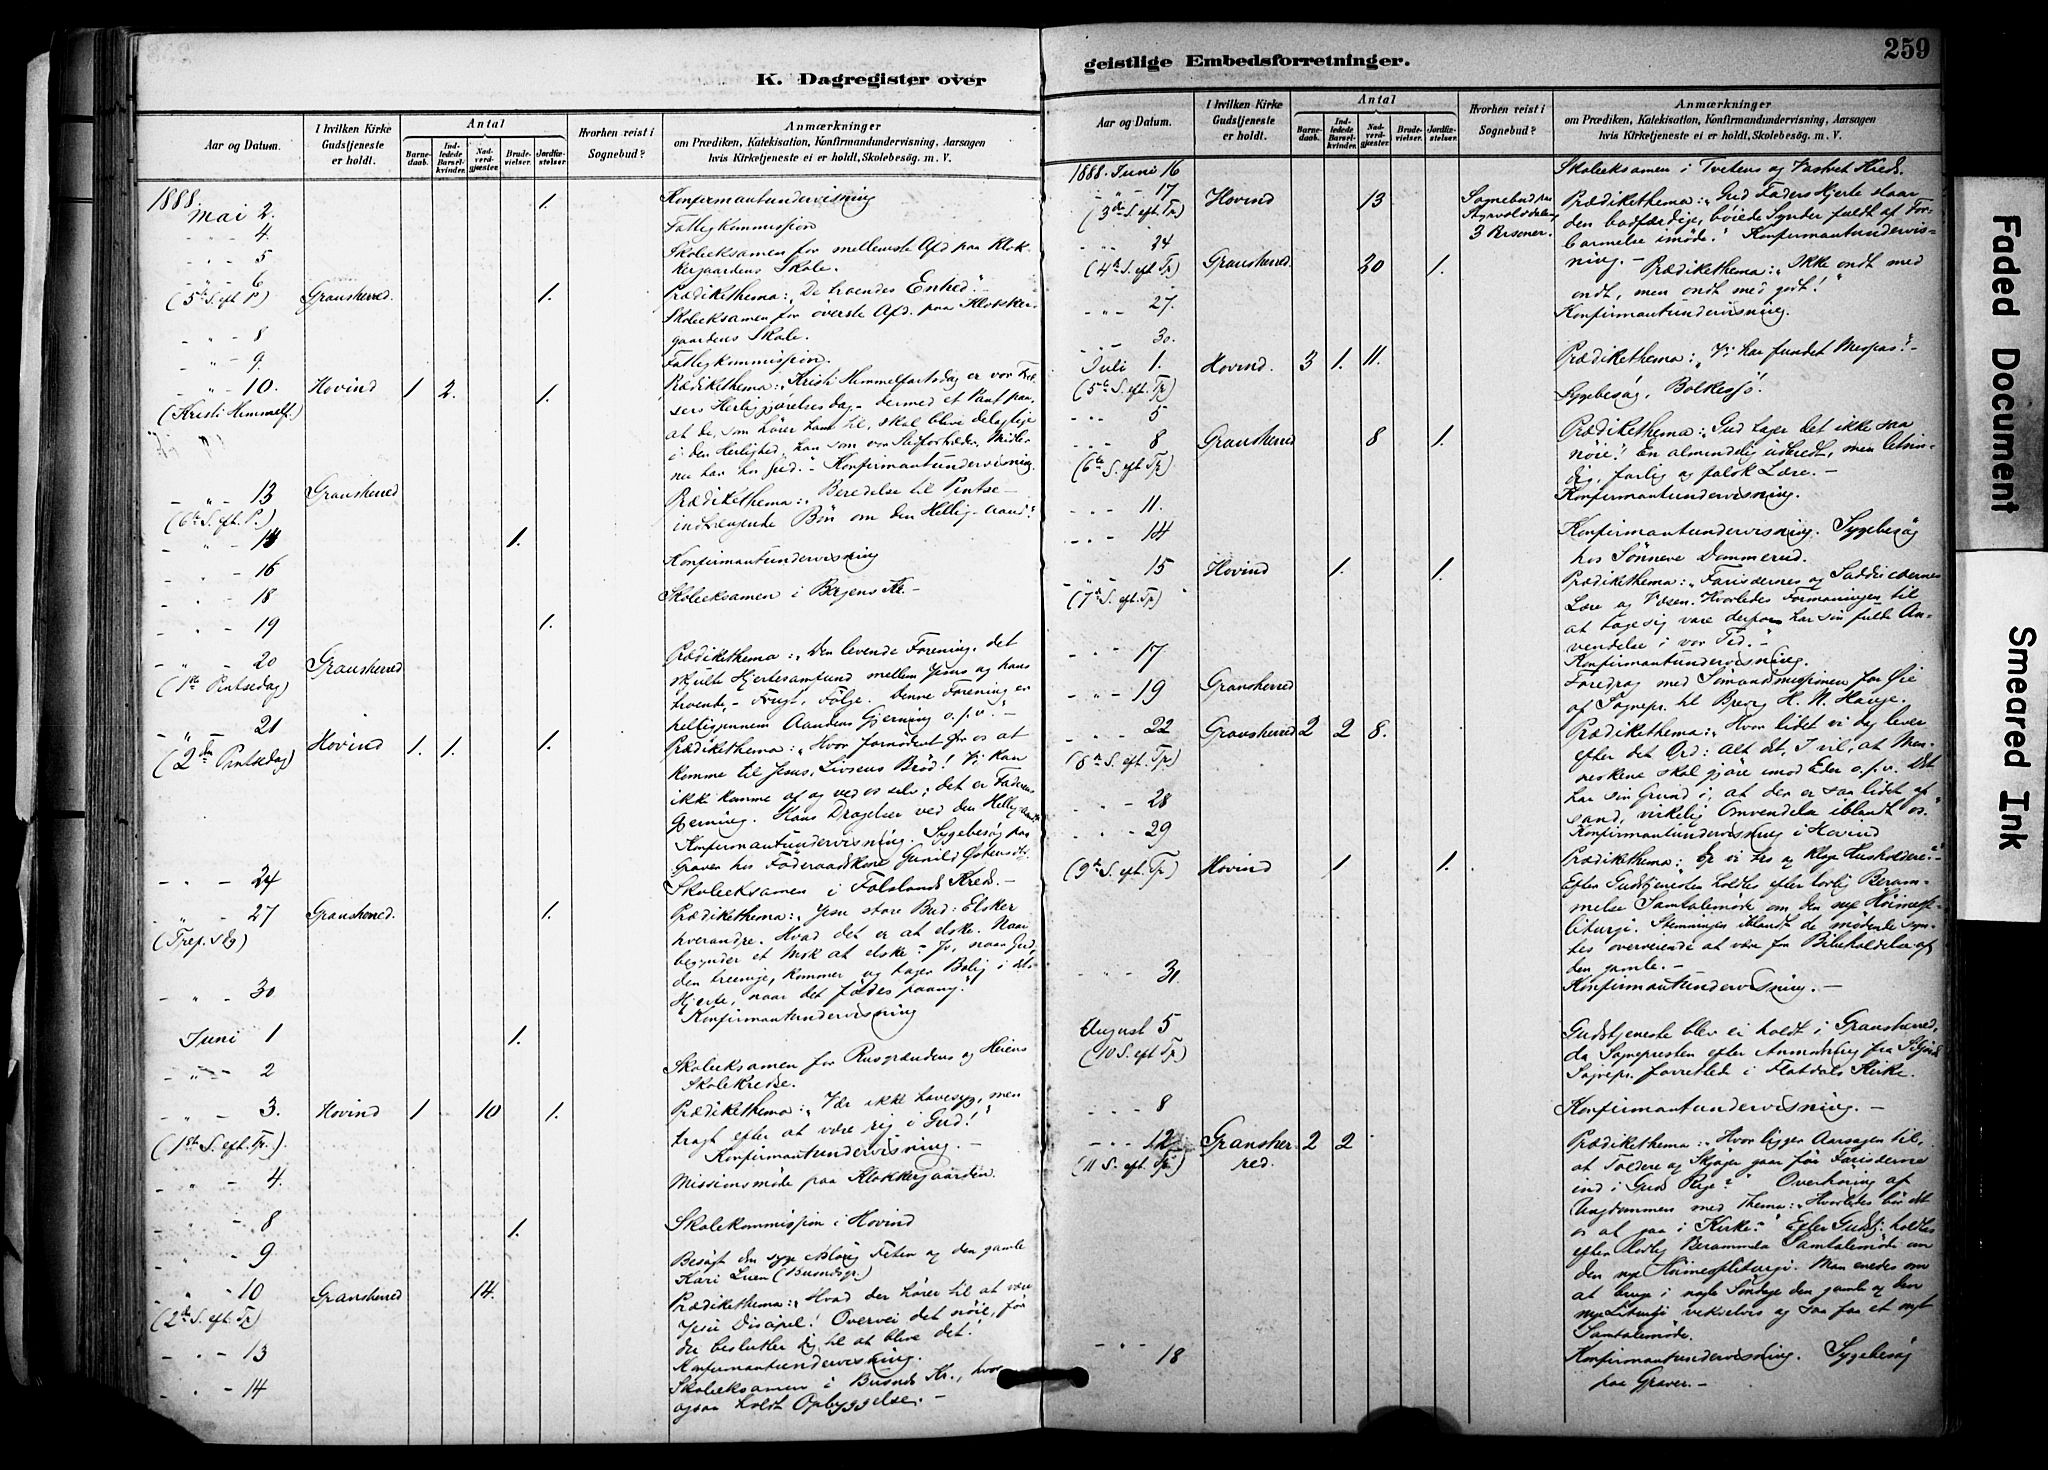 K. Dagregister over
Aar og Datum.
I hvilken Kirke Gudstjeneste er holdt.
Antal
Barnedaab.
Indledede Barselkvinder.
Nadverdgjæster.
Brudevielser.
Jordfæstelser.
Hvorhen reist i Sognebud?
Anmærkninger
om Prædiken, Katekisation, Konfirmandundervisning, Aarsagen
hvis Kirketjeneste ei er holdt, Skolebesøg. m. V.
1888.
Mai 2. 1. Konfirmantundervisning
" - 4. Fattigkommission
" - 5 Skoleeksamen for mellemste Afd. paa Klok-
kergaardens Skole.
" 6 Gransherred. 1. Prædikethema: "De troendes Enhed."
(5te S. eft. P.) Skoleeksamen for øverste Afd. paa Klokker-
- " - 8 gaardens Skole.
- " - 9. Fattigkommission.
- " - 10. Hovind 1 2. 1. Prædikethema: "Kristi Himmelfartsdag er vor Frel-
(Kristi Himmelf.) sers Herliggjørelsesdag - dermed et Pant paa,
at de, som hører ham til, skal blive delagtige
i den Herlighed, han som vor
nu har hos Gud." - Konfirmantundervisning.
- " - 13 Gransherred Prædikethema: "Beredelse til Pintse -
(6te S. eft. P.) indtrængende Bøn om den Hellig-Aand."
- " - 14 1.
- " - 16 Konfirmantundervisning
- " - 18 Skoleeksamen i Bøens Kr. -
- " - 19 1.
- " - 20 Gransherred Prædikethema: "Den levende Forening, det
(1ste Pintsedag) skjulte Hjertesamfund mellem Jesus og hans
troende, - Frugt, Følge. Denne Forening er
hellig gjennem Aandens Gjerning o.s.v." -
- " 21 Hovind 1. 1. 1. Prædikethema: "Hvor fornødent for os at
(2den Pintsedag) komme til Jesus, Livsens Brød! Vi kan
ikke komme af og ved os selv; det er Faderens
Gjerning. Hans Dragelser ved den Hellig-Aand."
Konfirmantundervisning. Sygebesøg paa
Graver hos Føderaadskone Gunild
- " - 24 Skoleeksamen i Folslands Kreds. -
- " - 27 Gransherred. 1. Prædikethema: "Jesu store Bud: Elsker
(Tref. sdg) hverandre. Hvad det er at elske. Naar
begynder et Msk at elske? Jo, naar Gud,
den treenige, kommer og tager Bolig i dets
- " - 30 Hjerte, naar det fødes paany."
Konfirmantundervisning
Juni 1 1.
- " - 2 Skoleeksamen for Rusgrændens og Heiens
Skolekredse.
- " - 3. Hovind 1 10 1. Prædikethema: "Vær ikke havesyg, men
(1ste S. eft. Tr.) tragt efter at være rig i Gud!"
Konfirmantundervisning. -
- " - 4. Missionsmøde paa Klokkergaarden.
- " - 8 1. Skolekommission i Hovind
- " - 9 Besøgt den syge Aslaug Feten og den gamle
Kari Luen (Busnesgr.)
- " - 10 Gransherred 14. Prædikethema: "Hvad der hører til at være
(2den S. eft. Tr) Jesu Discipel! Overvei det nøie, før
du beslutter dig til at blive det!
- " - 13 Konfirmantundervisning.
- " - 14 Skoleeksamen i Busnes Kr., hvor
ogsaa holdt Opbyggelse. -
geistlige Embedsforretninger.
259
Aar og Datum.
I hvilken Kirke Gudstjeneste er holdt.
Antal
Barnedaab.
Indledede Barselkvinder.
Nadverdgjæster.
Brudevielser.
Jordfæstelser.
Hvorhen reist i Sognebud?
Anmærkninger
om Prædiken, Katekisation, Konfirmandundervisning, Aarsagen
hvis Kirketjeneste ei er holdt, Skolebesøg. m. V.
1888. Juni 16 Skoleeksamen i Tveitens og Vastveit Kreds.
- " - 17 Hovind 13 Sognebud paa Prædikethema: "Gud Faders Hjerte staar
(3die S. eft. Tr) 3 Personer. den bodfærdige, bøiede Synder fuldt af For-
" - 24 barmelse imøde." Konfirmantundervis-
(4de S. eft. Tr) Gransherred. 20 1. ning. - Prædikethema: "Ikke ondt med
- " - 27. ondt, men ondt med godt!"
Konfirmantundervisning.
- " - 30.
Juli 1. Hovind. 3 1. 11. Prædikethema: "Vi har fundet Messias!" -
(5te S. eft. Tr) Sygebesøg, Bolkesjø.
- " - 5
- " - 8 Gransherred 8 1. Prædikethema: "Gud tager det ikke saa
(6te S. eft. Tr) nøie! En almindelig udbredt, men letsin-
dig, farlig og falsk Lære. -
- " - 11. Konfirmantundervisning.
- " - 14 Konfirmantundervisning. Sygebesøg
hos Sønneve Dammerud.
- " - 15 Hovind 1. 1. Prædikethema: "Farisæernes og Sadducæernes
(7de S. eft. Tr) Lære og Væsen. Hvorledes Formaningen til
at tage sig vare derfor har sin fulde An-
vendelse i vor Tid." -
- " - 17 Konfirmantundervisning.
- " - 19 Gransherred Foredrag med Sømandsmissionen for Øie
af Sognepr. til Brevig H. N. Hauge.
- " - 22 Gransherred 2 2 8. Prædikethema: "Hvor lidet vi dog lever
(8de S. eft. Tr.) efter det Ord: Alt det, I vil, at Men-
neskene skal gjøre imod Eder o.s.v. Det
- " - 28 har sin Grund i, at der er saa lidet af
sand, virkelig Omvendelse iblandt os."
- " - 29 Konfirmantundervisning i Hovind
(9de S. eft. Tr) Hovind 1 1. Prædikethema: "Er vi tro og kloge Husholdere?" -
Efter Gudstjenesten holdtes efter lovlig Beram-
melse Samtalemøde om den nye Høimesse-
liturgi. Stemningen iblandt de mødende syn-
tes overveiende at være for Bibeholdelse af
- " - 31. den gamle. -
Konfirmantundervisning. -
August 5 Gudstjeneste blev ei holdt i Gransherred,
(10 S. eft Tr) da Sognepresten efter Anmodning fra
Sognepr. forrettede i Flatdals Kirke.
- " - 8 Konfirmantundervisning. -
- " - 12 Gransher- 2 2 Prædikethema: "Hvor ligger Aarsagen til,
(11 S. eft. Tr) red. at Toldere og Skjøger gaar før Farisæerne
ind i Guds Rige?" Overhøring af
Ungdommen med Thema: "Hvorledes bør det
os at gaa i Kirke?" Efter Gudstj. holdtes
efter lovlig Berammelse Samtalemøde om
den nye Høimesseliturgi. Man enedes om
at bruge i nogle Søndage den gamle og den
nye Liturgi vekselvis og saa faa et nyt
Samtalemøde.
- " - 18 Konfirmantundervisning. Sygebesøg
paa Graver. -
Faded Document
Smeared Ink